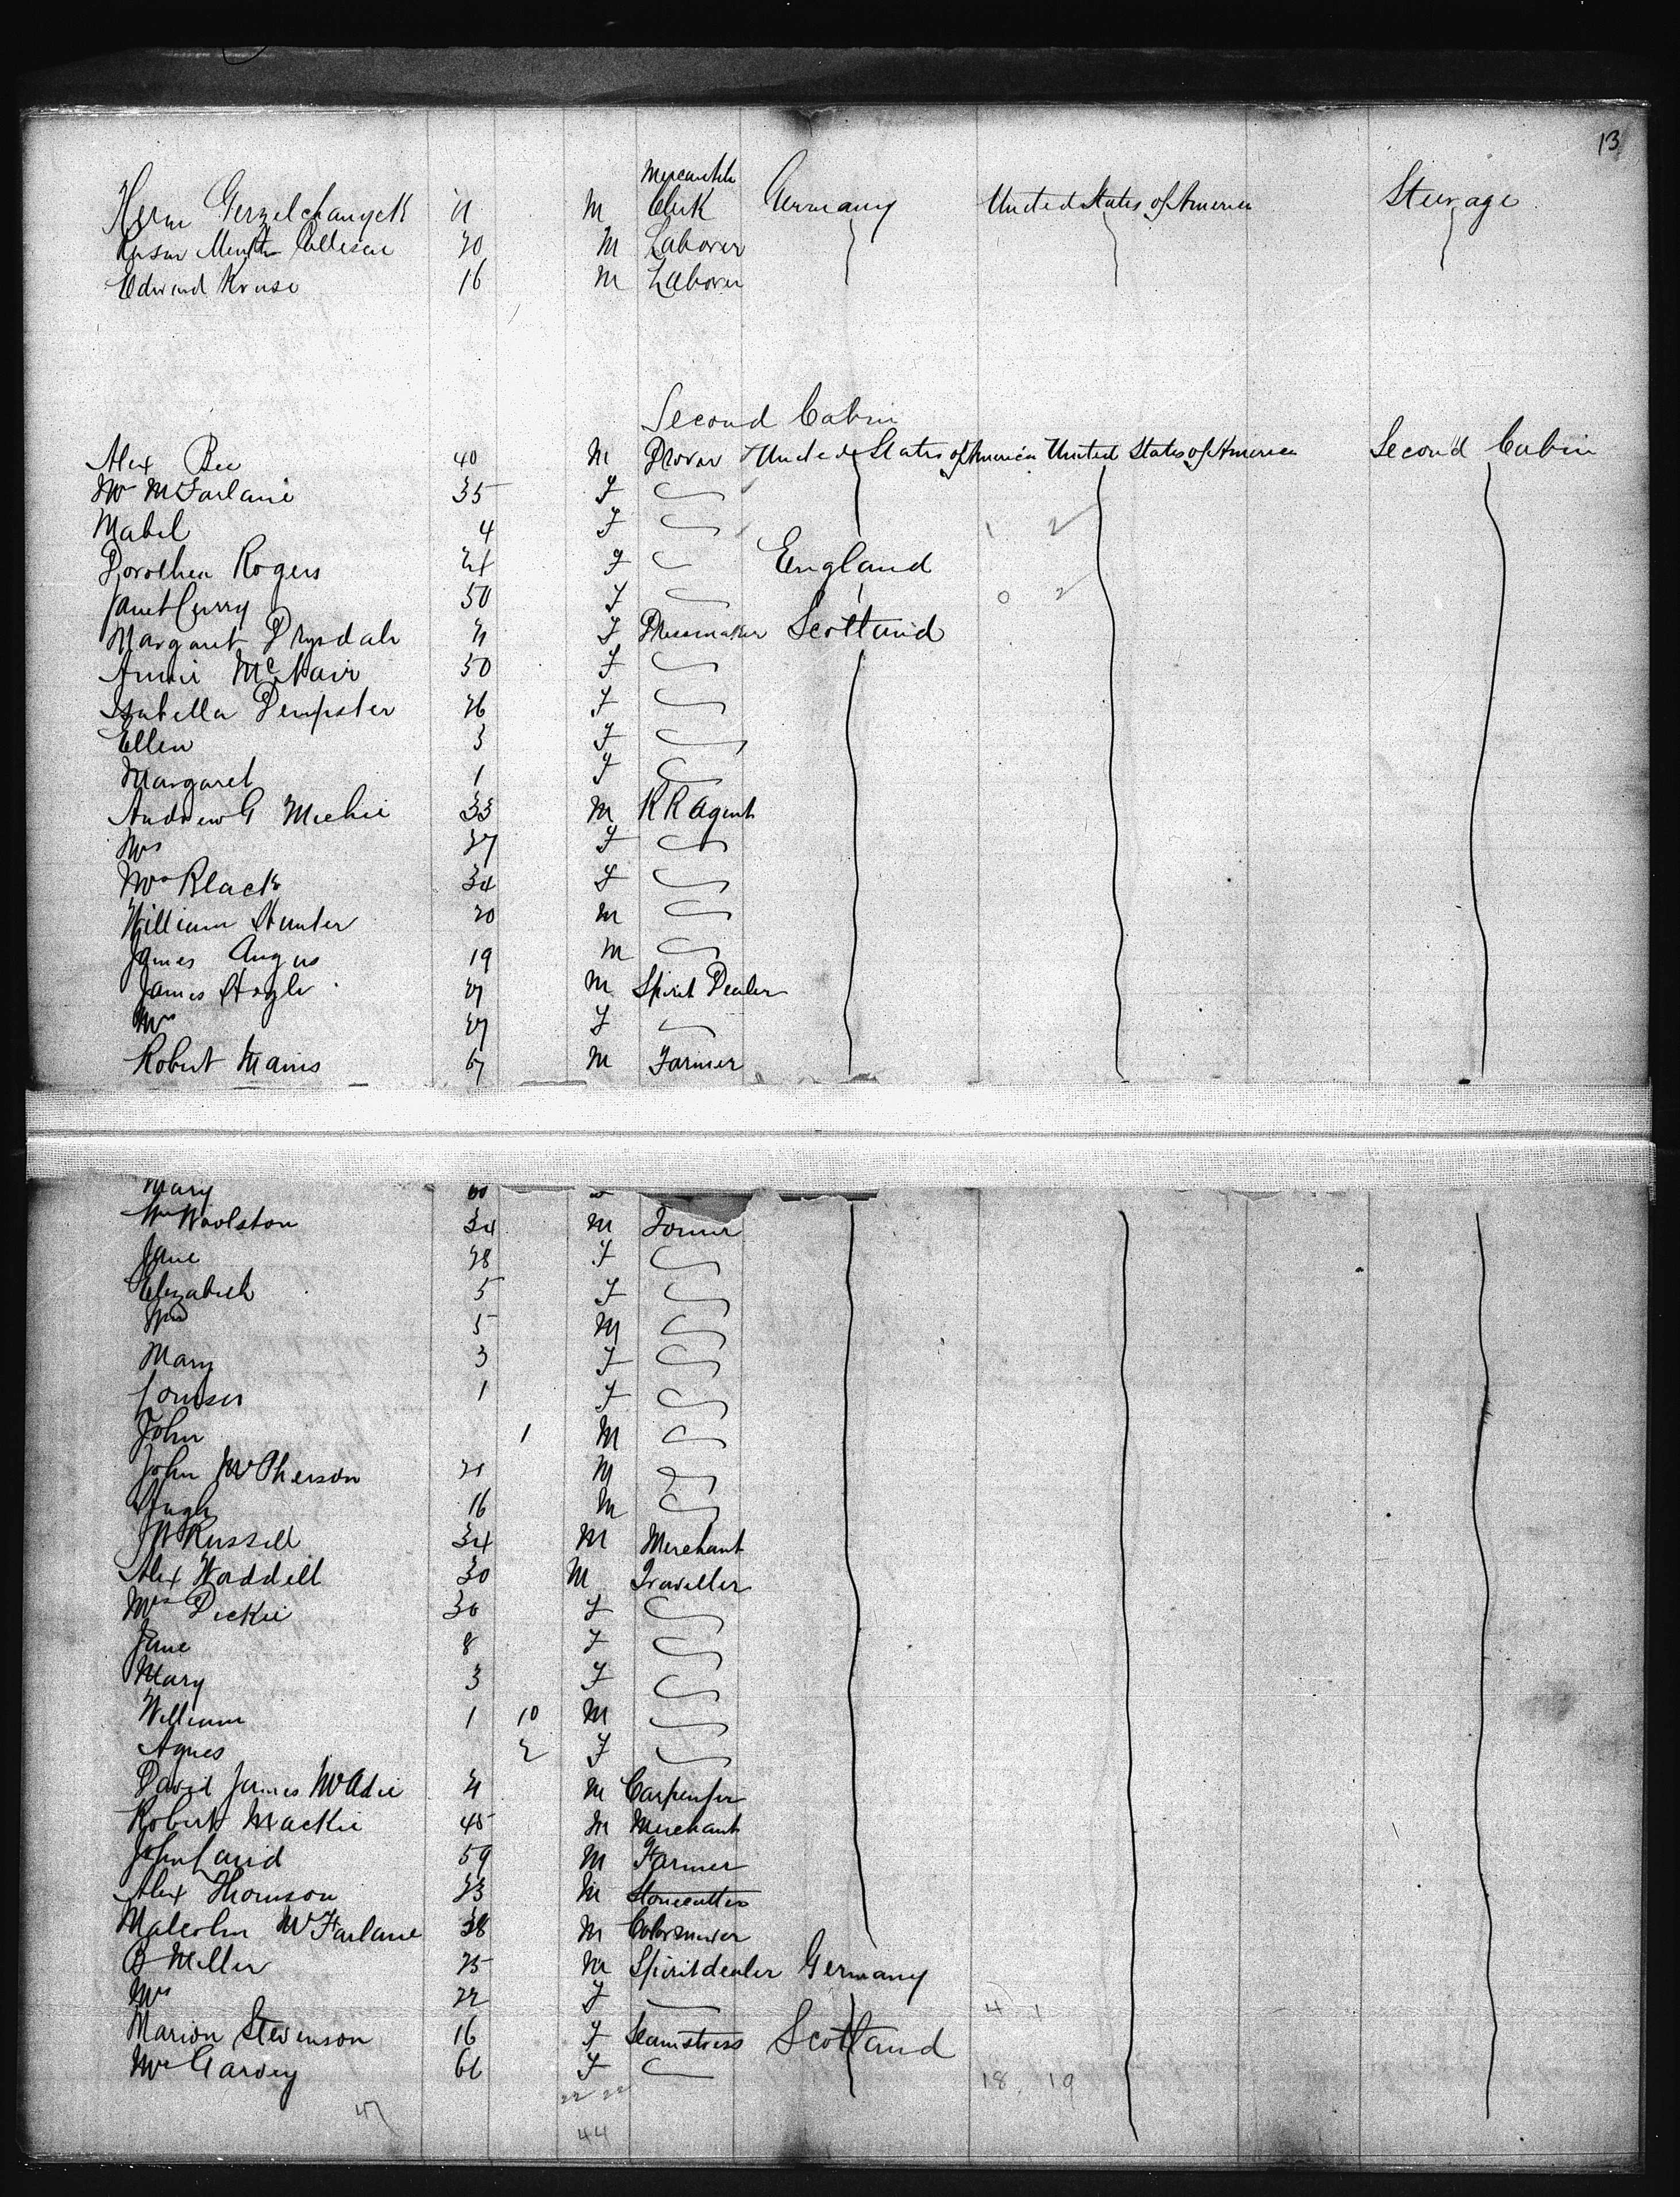 13
Mercantile
Herm Gerzelchangek M Clerk Germany United States of America Steerage
20 M Laborer
Edward Kruse 16 M Laborer
Second Cabin
Alex Bee 40 M Drover United States of America United States of America Second Cabin
Mrs McFarlane 35 F
Mabel 4 F
Dorothea Rogers 24 F England
Janet Curry 50 F
Margaret Drysdale F Dressmaker Scotland
Annie McNair 50 F
Isabella Dempster 26 F
Ellen 3 F
Margaret 1 F
Andrew G Michie 33 M R R Agent
Mrs 27 F
Mrs Black 34 F
William Hunter 20 M
James Angus 19 M
James Hogle 27 M Spirit Dealer
Mrs 27 F
Robert Manis 67 M Farmer
Mary 60 F
Wm Woolston 34 M Joiner
Jane 28 F
Elizabeth 5 F
Wm 5 M
Mary 3 F
Louisa 1 F
John 1 M
John McPherson 21 M
Hugh 16 M
Russell 34 M Merchant
Alex Waddell 30 M Traveller
Mrs Dickie 30 F
Jane 8 F
Mary 3 F
William 1 10 M
Agnes 2 F
David James McAdie 21 M Carpenter
Robert Mackie 45 M Merchant
John Laird 59 M Farmer
Alex Thomson 23 M Stonecutter
Malcolm McFarlane 38 M Colormixer
B Miller 25 M Spirit dealer Germany
Mrs 22 F 4 1
Marion Stevenson 16 F Seamstress Scotland
Mrs Garvey 66 F 18 19
22 22
47 44